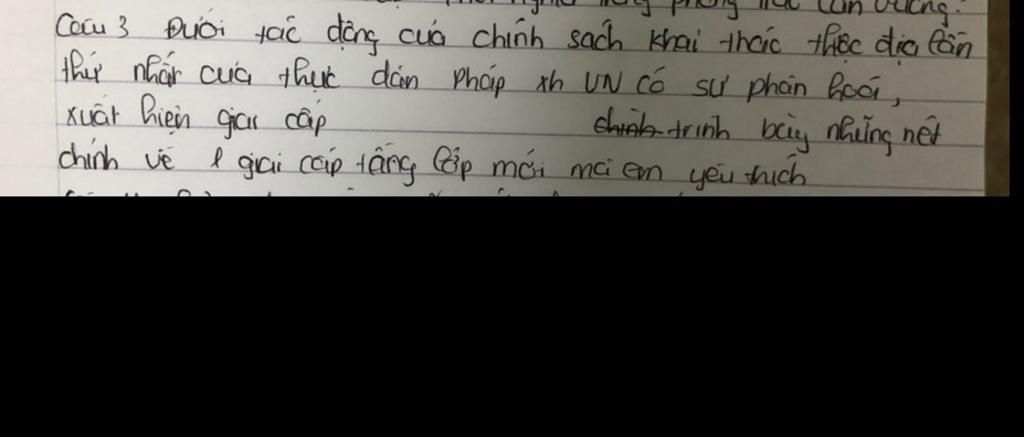 Câu 3 Dưới tác động của chính sách khai thác thuộc địa lần
thứ nhất của thực dân Pháp xh VN có sự phân hoá,
xuất hiện giai cấp chính trình bày những nét
chính về 1 giai cấp tầng lớp mới mà em yêu thích